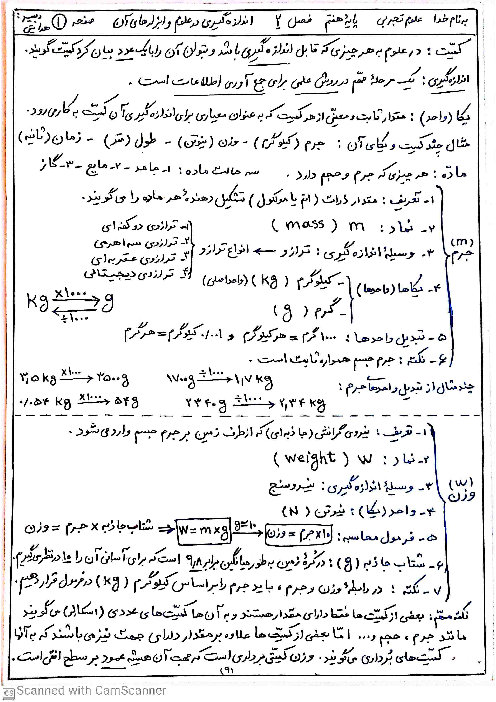 به نام خدا علوم تجربی پایهٔ هفتم فصل ۲ اندازه گیری در علوم و ابزارهای آن صفحه ۱ دبیر: هدایتی
کمیّت: در علوم به هر چیزی که قابل اندازه گیری باشد و بتوان آن را با یک عدد بیان کرد کمیّت گویند.
اندازه گیری: یک مرحلهٔ مهم در روش علمی برای جمع آوری اطلاعات است.
یکا (واحد): مقدار ثابت و معیّنی از هر کمیت که به عنوان معیاری برای اندازه گیری آن کمیّت به کار می رود.
مثال چند کمیّت و یکای آن: جرم (کیلوگرم) - وزن (نیوتن) - طول (متر) - زمان (ثانیه)
مادّه: هر چیزی که جرم و حجم دارد. سه حالت ماده: ۱- جامد - ۲- مایع - ۳- گاز
جرم (m)
۱- تعریف: مقدار ذرات (اتم یا مولکول) تشکیل دهندهٔ هر ماده را می گویند.
۲- نماد: m (mass)
۳- وسیلهٔ اندازه گیری: ترازو ← انواع ترازو
۱- ترازوی دو کفه ای
۲- ترازوی سه اهرمی
۳- ترازوی عقربه ای
۴- ترازوی دیجیتالی
۴- یکاها (واحدها)
- کیلوگرم (kg) (واحد اصلی)
- گرم (g)
kg ×۱۰۰۰ ÷۱۰۰۰ g
۵- تبدیل واحدها: ۱۰۰۰ گرم = هر کیلوگرم و ۰/۰۰۱ کیلوگرم = هر گرم
۶- نکته: جرم جسم همواره ثابت است.
چند مثال از تبدیل واحدهای جرم:
۳,۵ kg ×۱۰۰۰ → ۳۵۰۰ g ۱۷۰۰ g ÷۱۰۰۰ → ۱,۷ kg
۰/۰۵۴ kg ×۱۰۰۰ → ۵۴ g ۲۳۴۰ g ÷۱۰۰۰ → ۲,۳۴ kg
وزن (W)
۱- تعریف: نیروی گرانش (جاذبه ای) که از طرف زمین بر جرم جسم وارد می شود.
۲- نماد: W (weight)
۳- وسیلهٔ اندازه گیری: نیروسنج
۴- واحد (یکا): نیوتن (N)
۵- فرمول محاسبه: وزن = جرم × ۱۰ g=۱۰ W = m×g شتاب جاذبه × جرم = وزن
۶- شتاب جاذبه (g): در کرهٔ زمین به طور میانگین برابر ۹٫۸ است که برای آسانی آن را ۱۰ در نظر می گیریم.
۷- نکته: در رابطهٔ وزن و جرم، باید جرم را بر اساس کیلوگرم (kg) در فرمول قرار دهیم.
نکته مهم: بعضی از کمیّت ها فقط دارای مقدار هستند و به آن ها کمیّت های عددی (اسکالر) می گویند
مانند جرم، حجم و... امّا بعضی از کمیّت ها علاوه بر مقدار دارای جهت نیز می باشند که به آنها
کمیّت های برداری می گویند. وزن کمیّتی برداری است که جهت آن همیشه عمود بر سطح افقی است.
(۹)
CS Scanned with CamScanner